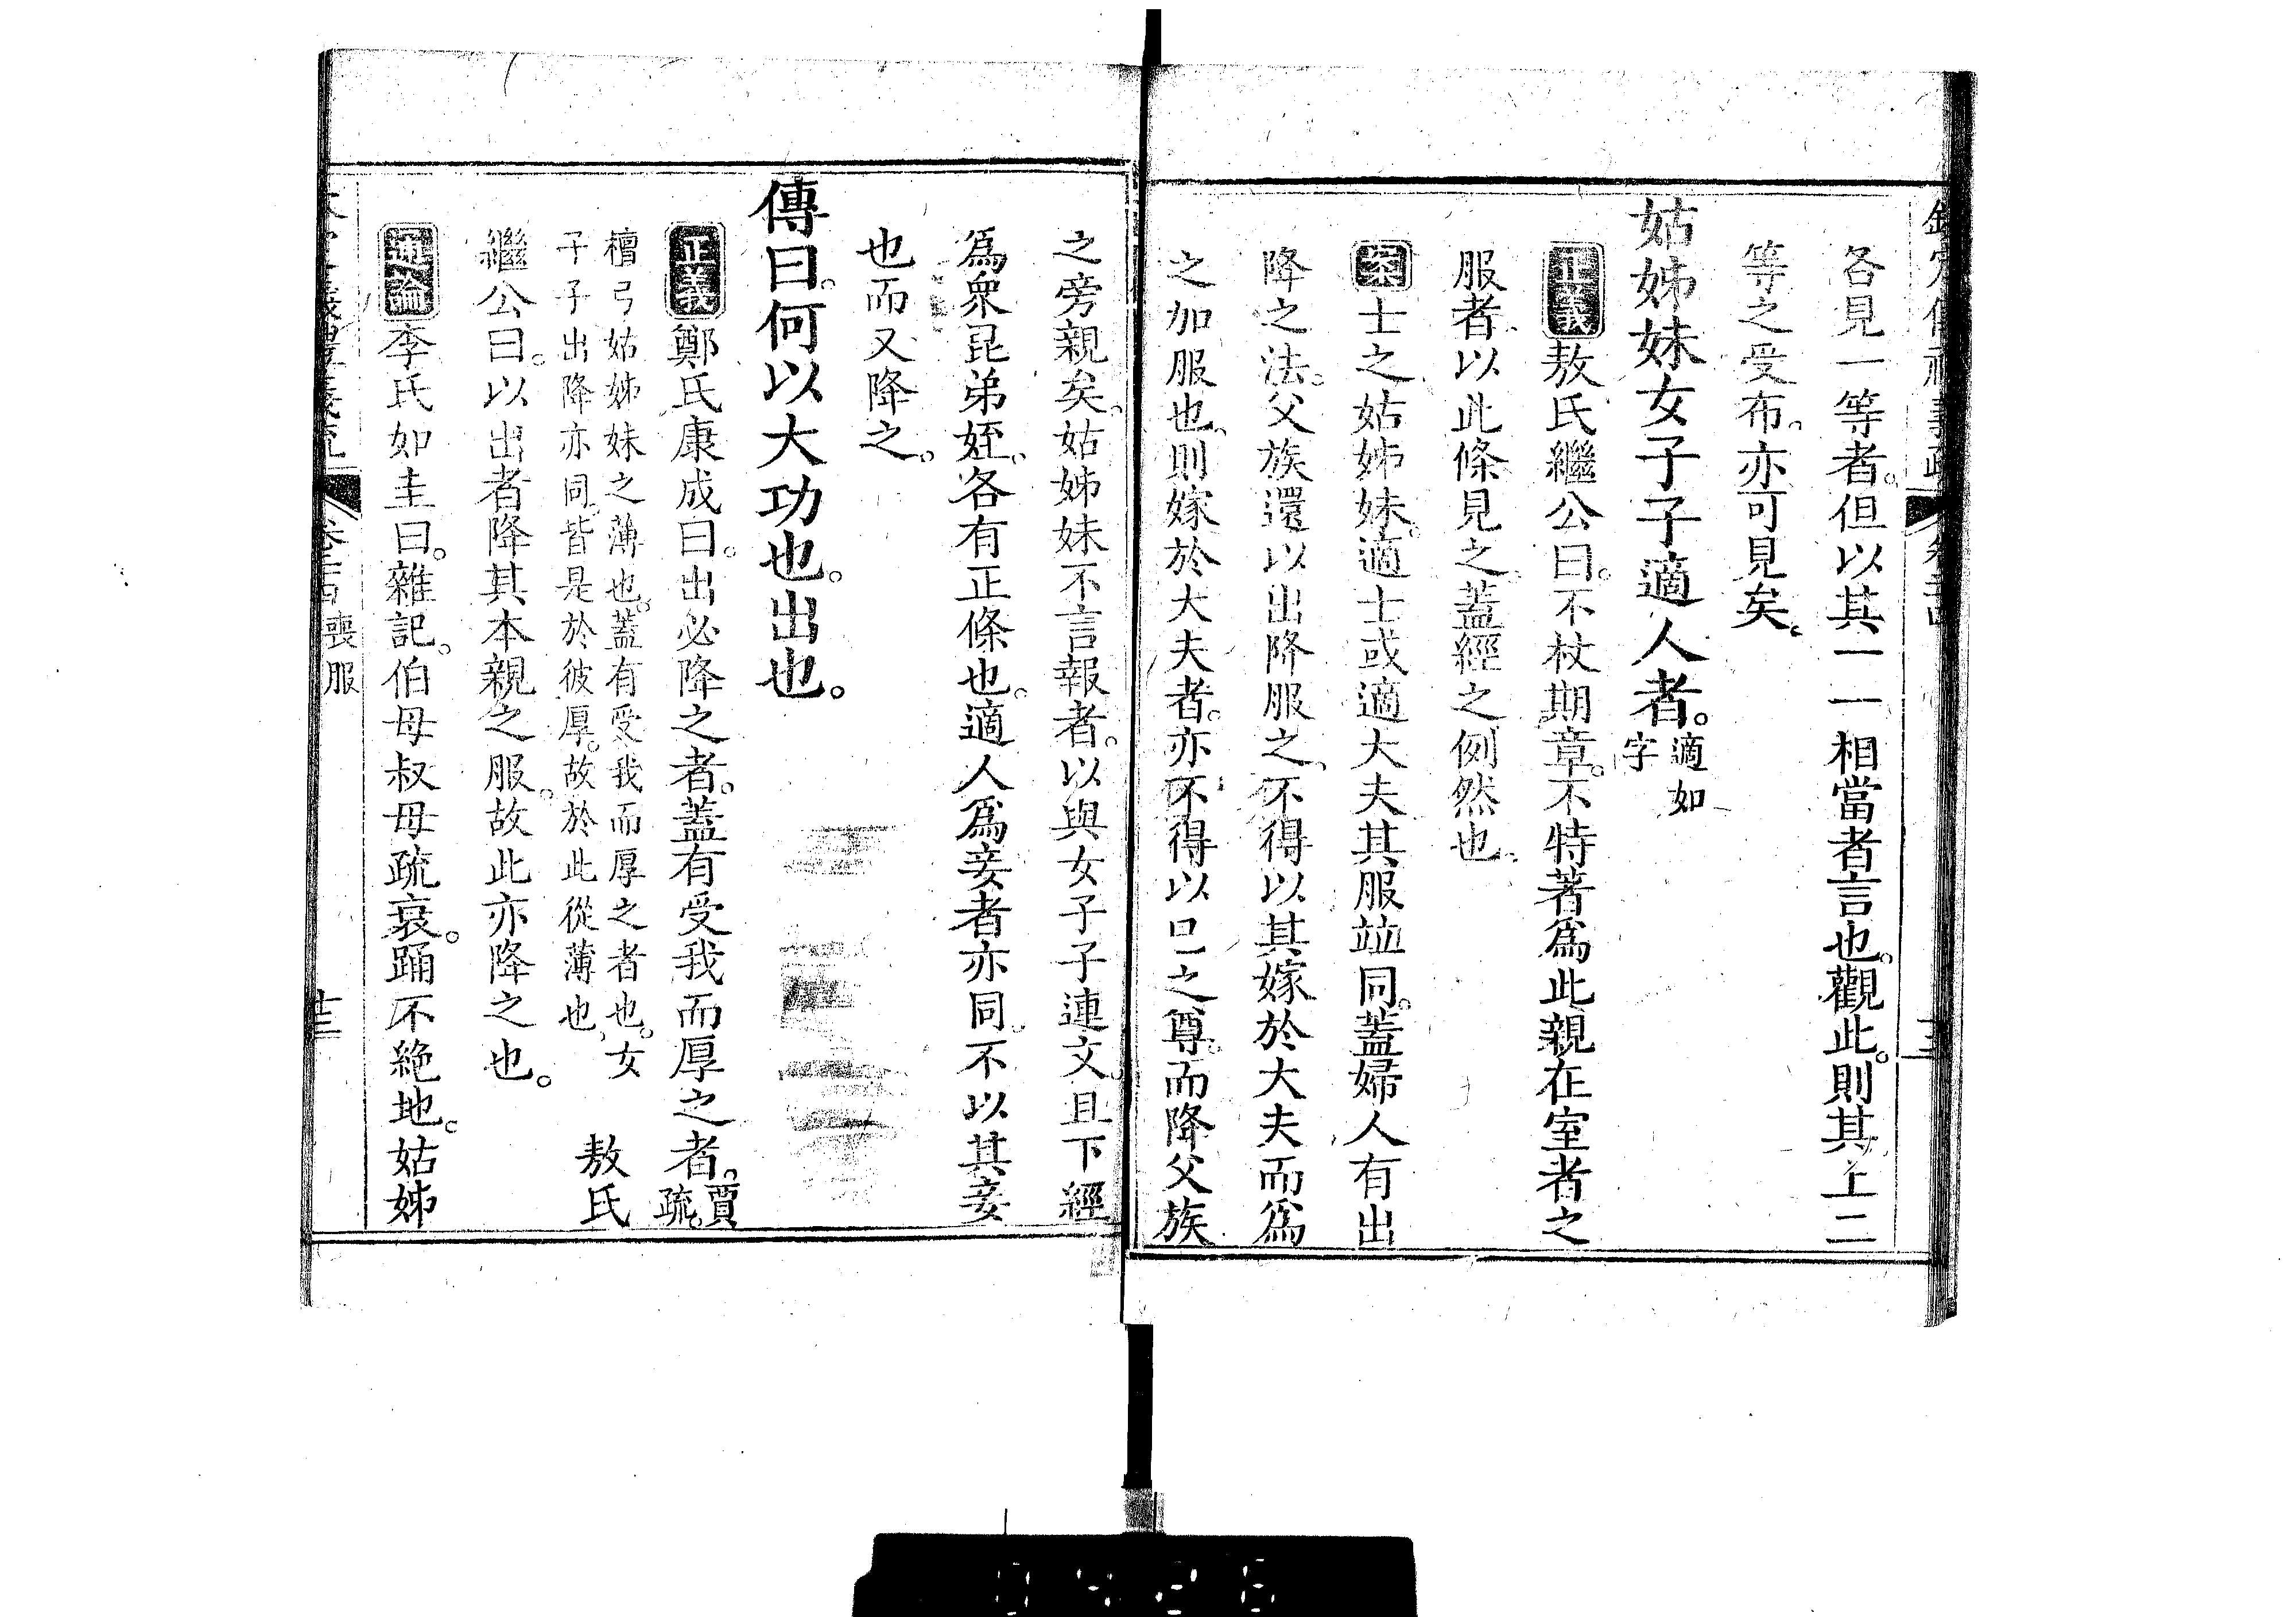 各見一等者。但以其一一相當者言也。觀此。則其上二
等之受布。亦可見矣。
姑姊妹女子子適人者。適如字
正義敖氏繼公曰。不杖期章。不特著爲此親在室者之
服者。以此條見之。蓋經之例然也。
案士之姑姊妹。適士或適大夫其服竝同。蓋婦人有出
降之法。父族還以出降服之、不得以其嫁於大夫而爲
之加服也、則嫁於大夫者。亦不得以己之尊。而降父族
之旁親矣。姑姊妹不言報者。以與女子子連文。且下經
爲衆昆弟姪。各有正條也。適人爲妾者亦同。不以其妾
也而又降之。
傳曰。何以大功也。出也。
正義鄭氏康成曰。出必降之者。蓋有受我而厚之者。賈疏。
檀弓姑姊妹之薄也。蓋有受我而厚之者也。女
子子出降亦同。皆是於彼厚。故於此從薄也、 敖氏
繼公曰。以出者降其本親之服。故此亦降之也。
通論李氏如圭曰。雜記。伯母叔母疏衰。踊不絶地。姑姊
喪服